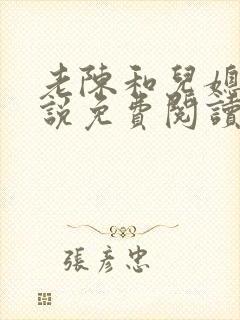 老陳和兒媳
說免費閱讀
張彥忠